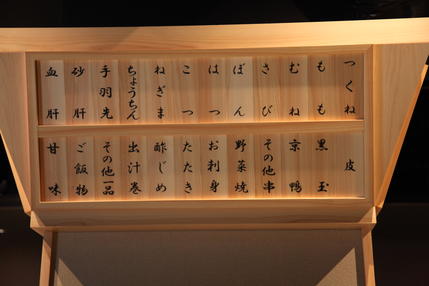 つくね
もも
むね
さび
ぼん
はつ
こつ
ねぎま
ちょうちん
手羽先
砂肝
血肝
皮
黒玉
京鴨
その他串
野菜焼
お刺身
たたき
酢じめ
出汁巻
その他一品
ご飯物
甘味